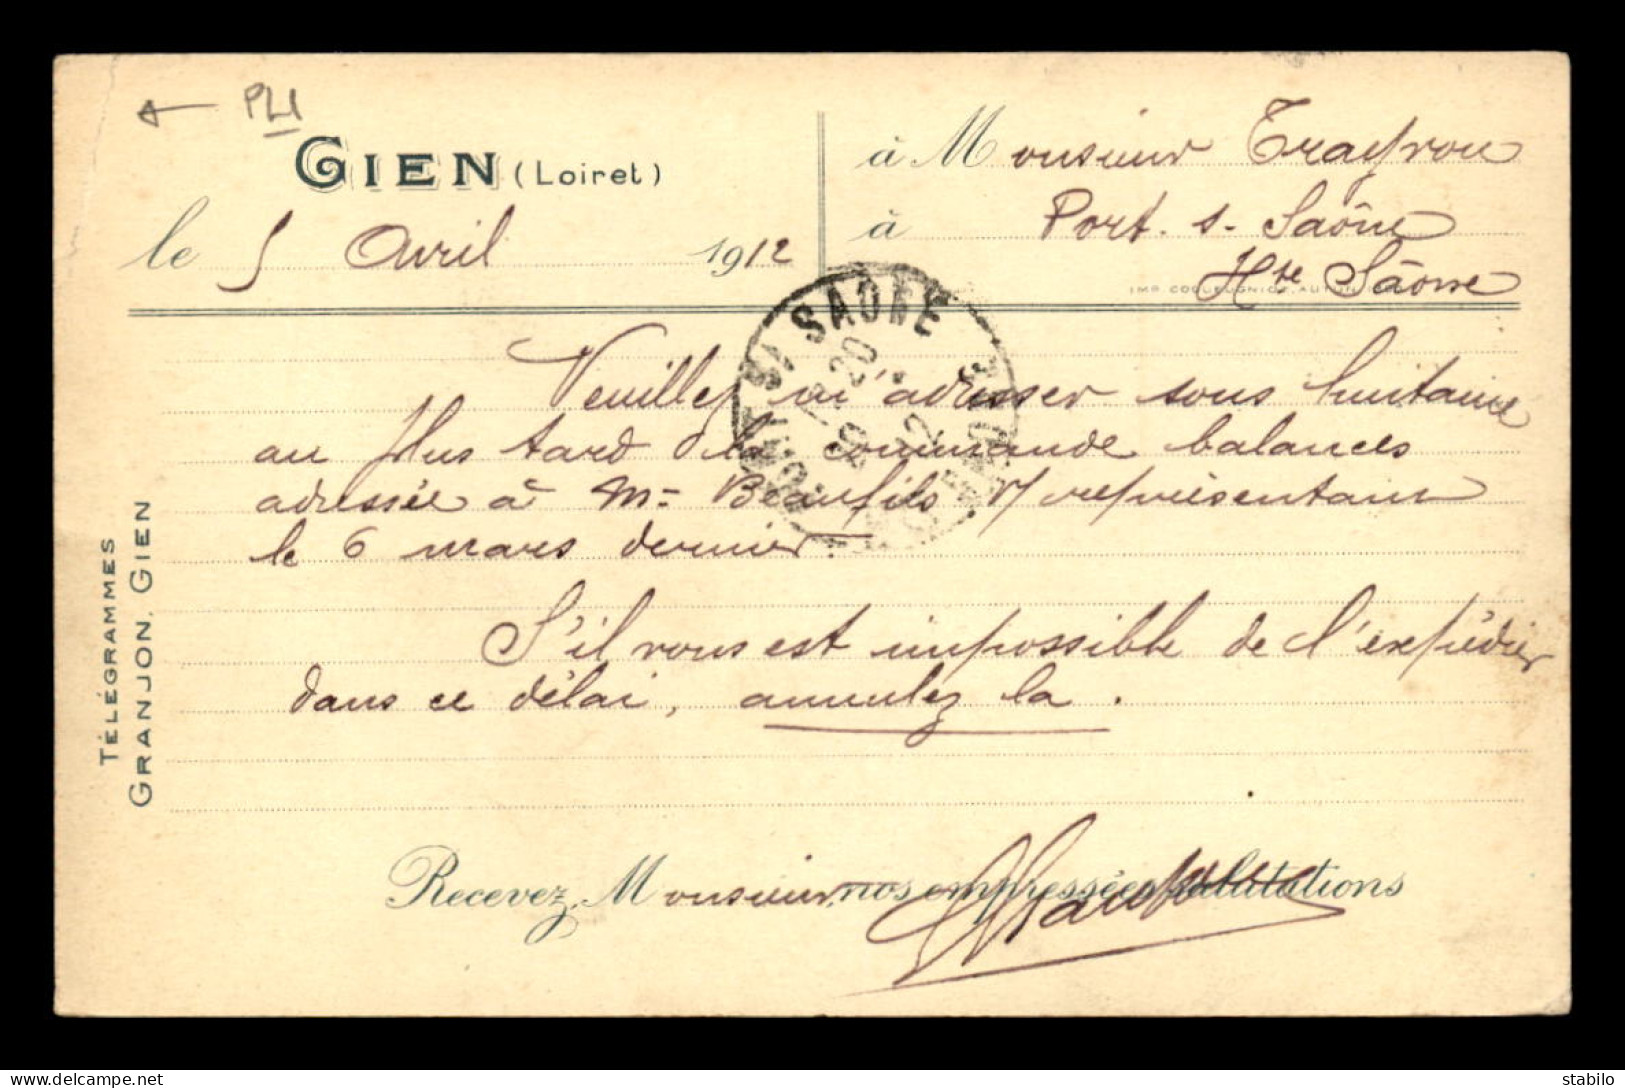 PLI
GIEN (Loiret)
le 5 Avril 1912
à Monsieur
à Port. s. Saône
Hte Saône
IMP. COQUEUGNIOT, AUTUN
PORT S/ SAONE
Veuillez m'adresser sous huitaine
au plus tard la commande balances
adressée à Mr Beaufils n/ représentant
le 6 mars dernier.
S'il vous est impossible de l'expédier
dans ce délai, annulez la.
TÉLÉGRAMMES
GRANJON, GIEN
Recevez, Monsieur, nos empressées salutations
delcampe.net
stabilo